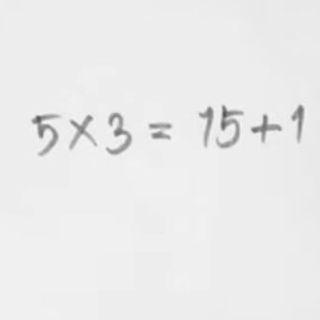 5 × 3 = 15 + 1